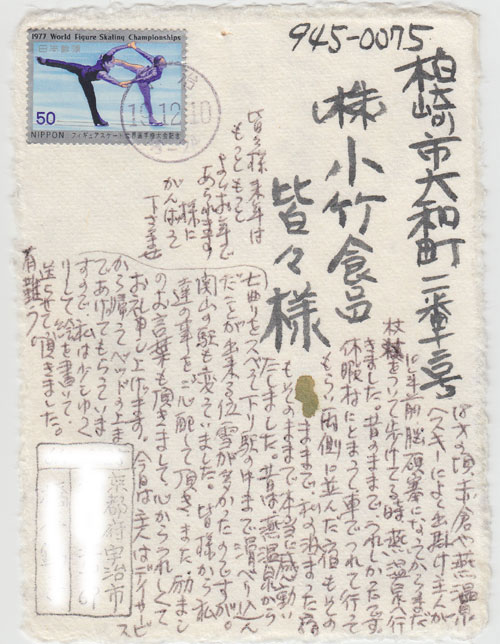 1977 World Figure Skating Championships
日本郵便
50
NIPPON フィギュアスケート世界選手権大会記念
治
13.12.10
945-0075
柏崎市大和町二番十三号
(株)小竹食品
皆々様
皆々様来年は
もっともっと
よいお年で
あられます
様に
がんばって
下さいませ
はスキーによく出掛け主人が
七年前脳硬塞になってからまだ
杖をついて歩けてる時、燕温泉へ行
きました。昔のままで、うれしかったです
休暇村にとまって車でつれて行って
もらい両側に並んだ宿もその
ままで、私の
もそのままで本当に感動い
たしました。昔は燕温泉から
七曲りをスベって下り駅の中まで滑べり込ん
だことが出来る位雪が多かったのですが。
関山の駅も変っていました。皆様から私
達の事をご心配して頂きました。励まし
のお言葉も頂きまして心からうれしくて
お礼申し上げます。今日は主人はデイサービス
から帰ってベッドの上ま
であげてもらっていま
すので、私は少しゆっく
りして絵を書いて、
送らせて頂きました。
有難う。
京都府宇治市